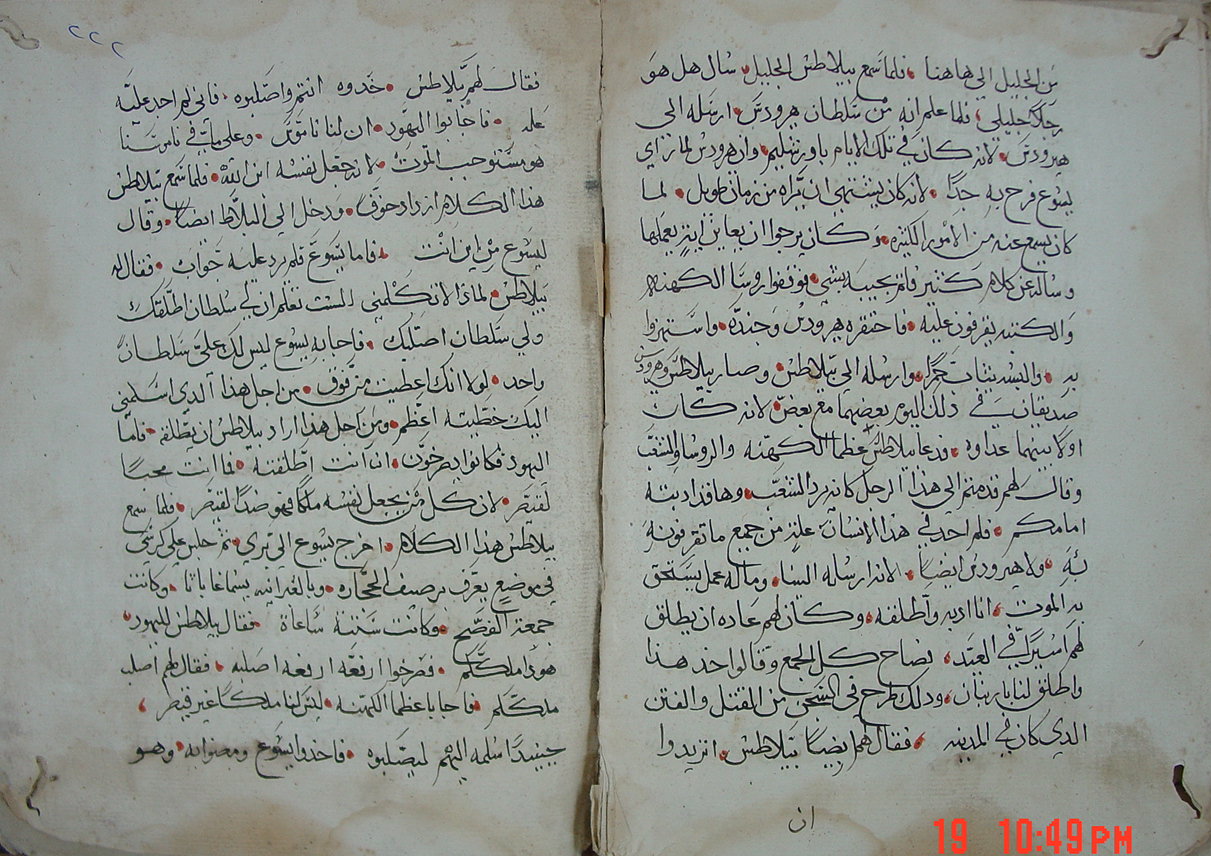 من الجليل الي هاهنا فلما سمع بيلاطس الجليل سال هل هو
رجلا جليلي فلما علم انه من سلطان هيرودس ارسله الي
هيرودس لانه كان في تلك الايام باورشليم واذ هرودس لما راي
يسوع فرح به جدا لانه كان يشتهي ان يراه من زمان طويل لما
كان يسمع عنه من الامور الكثيره وكان يرجوا ان يعاين اية يعملها
وساله عن كلام كثير فلم يجيبه بشي فوقفوا روسا الكهنه
والكتبه يقرفون عليه فاحتقره هيرودس وجنده واستهزوا
به والبسه ثياب حمرا وارسله الي بيلاطس وصار بيلاطس وهرودس
صديقان في ذلك اليوم بعضهما مع بعض لانه كان
اولا بينهما عداوه فدعا بيلاطس عظما الكهنه والروسا والشعب
وقال لهم قدمتم الي هذا الرجل كانه يرد الشعب وها قد ادبته
امامكم فلم اجد في هذا الانسان علة من جميع ما تقرفونه
به ولا هيرودس ايضا لانه ارسله الينا وما له عمل يستحق
به الموت انا اادبه واطلقه وكان لهم عاده ان يطلق
لهم اسيرا في العيد فصاح كل الجمع وقالوا خد هذا
واطلق لنا باربان ودلك طرح في السجن من المقتل والفتن
الدي كان في المدينه فقال لهم ايضا بيلاطس اتريدوا
ان
٢٢٢
فقال لهم بيلاطس خدوه انتم واصلبوه فاني لم اجد عليه
عله فاجابوا اليهود ان لنا ناموس وعلي ما في ناموسنا
هو مستوجب الموت لانه جعل نفسه ابن الله فلما سمع بيلاطس
هذا الكلام ازداد خوفا ودخل الي البلاط ايضا وقال
ليسوع من اين انت فاما يسوع فلم يرد عليه جواب فقال له
بيلاطس لماذا لا تكلمني الست تعلم ان لي سلطان اطلقك
ولي سلطان اصلبك فاجابه يسوع ليس لك علي سلطان
واحد لولا انك اعطيت من فوق من اجل هذا الدي اسلمني
اليك خطيته اعظم ومن اجل هذا اراد بيلاطس ان يطلقه فاما
اليهود فكانوا يصرخون ان انت اطلقته فما انت محبا
لقيصر لان كل من يجعل نفسه ملكا فهو ضدا لقيصر فلما سمع
بيلاطس هذا الكلام اخرج يسوع الي بري ثم جلس علي كرسي
في موضع يعرف برصيف الحجاره وبالعبرانيه يسما غاباثا وكانت
جمعة الفصح وكانت ستة ساعاة فقال بيلاطس لليهود
هودا ملككم فصرخوا ارفعه ارفعه اصلبه فقال لهم اصلب
ملككم فاجابا عظما الكهنه ليس لنا ملكا غير قيصر
حينيدا اسلمه اليهم ليصلبوه فاخدوا يسوع ومضوا به وهو
19 10:49 PM